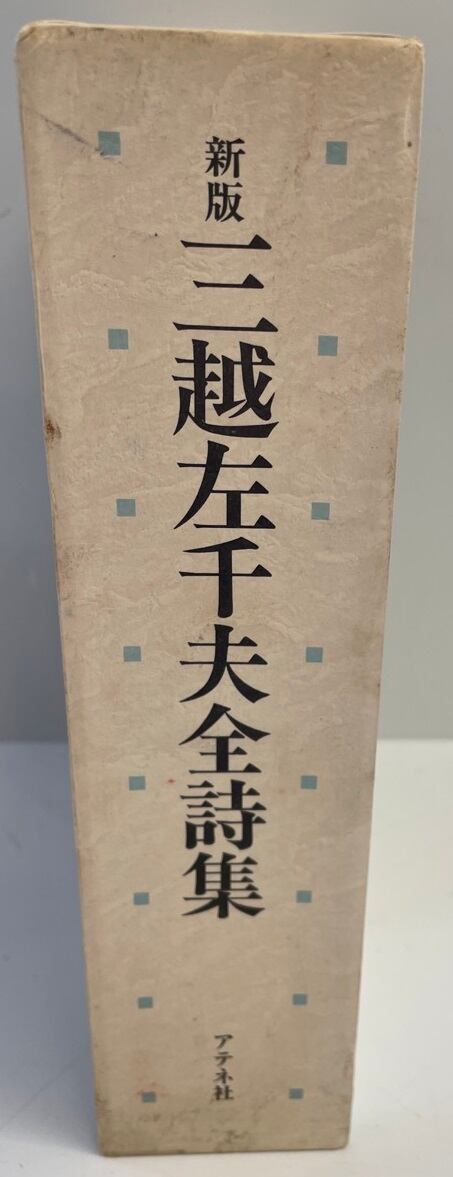 新版
三越左千夫全詩集
アテネ社